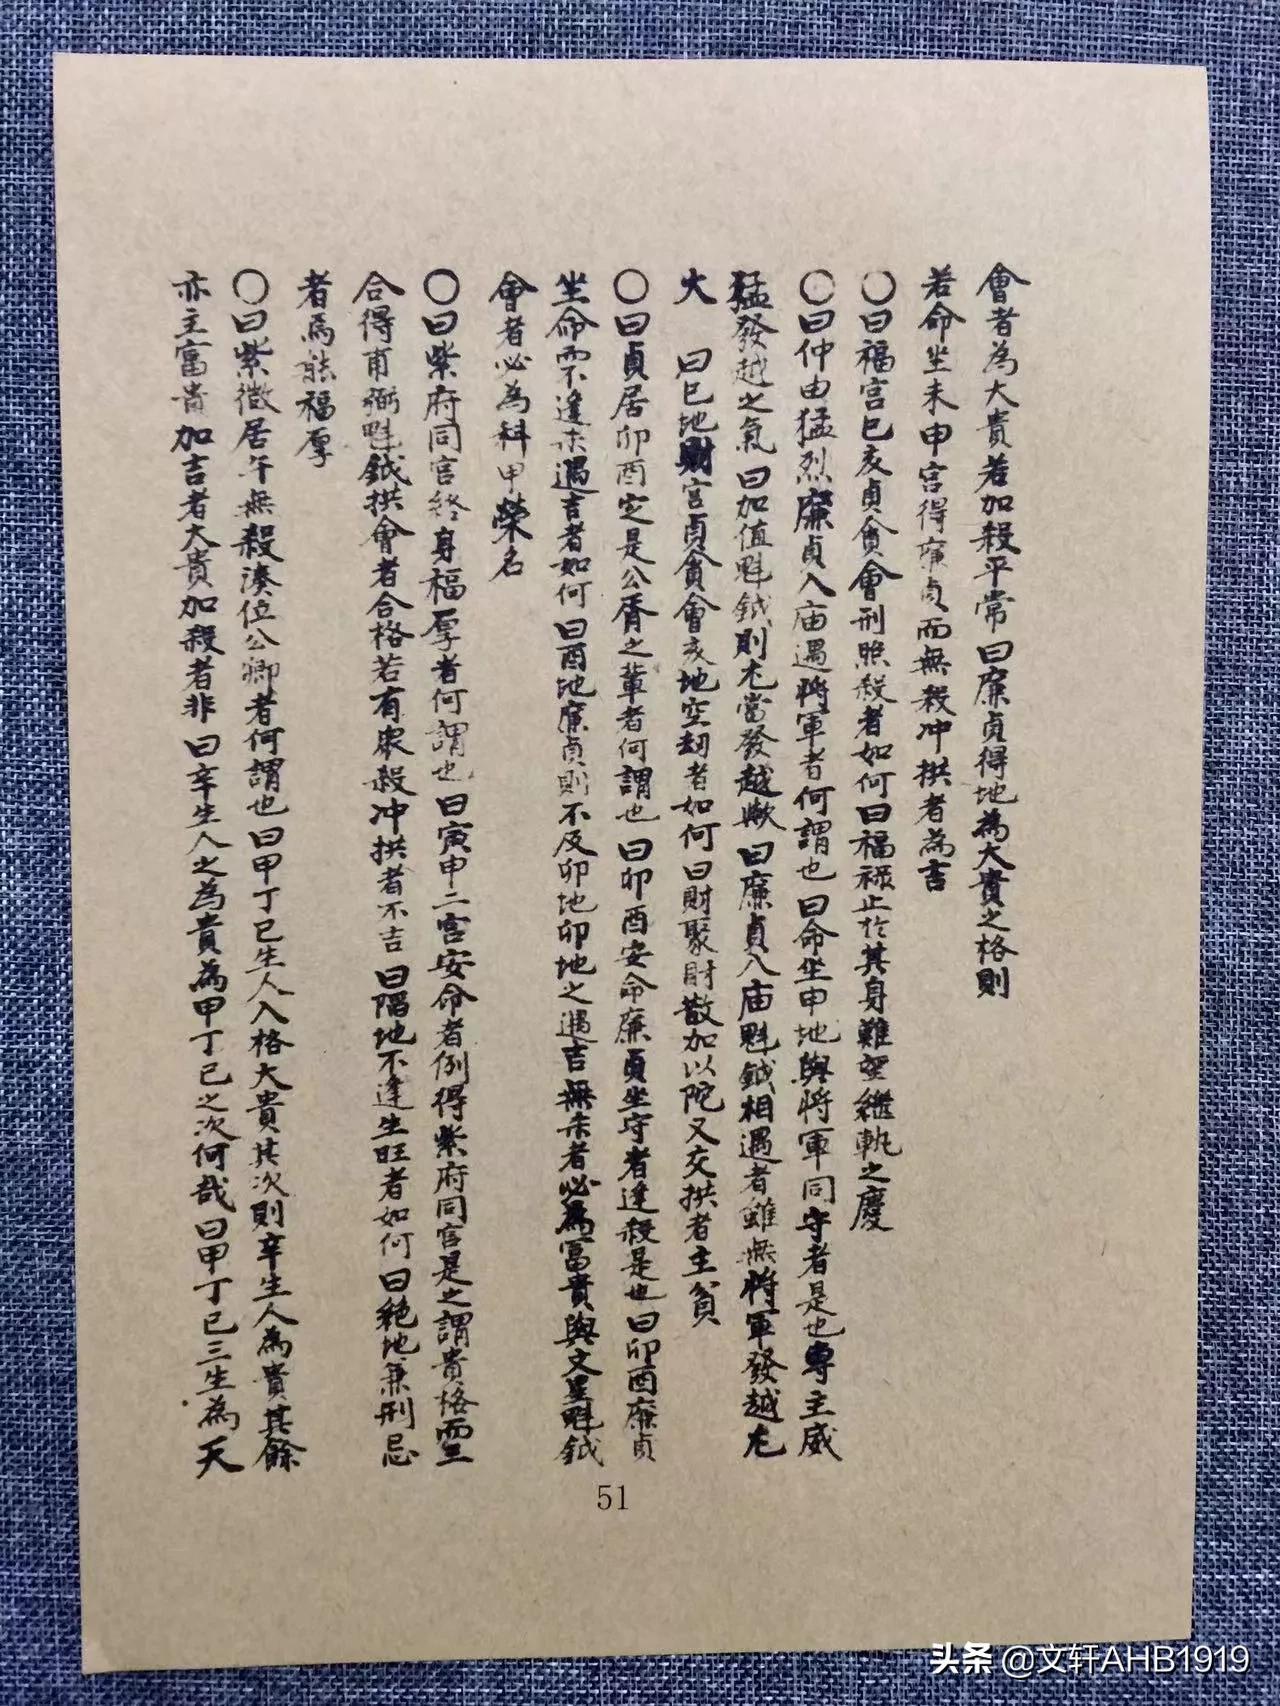 會者為大貴若加殺平常曰廉貞得地為大貴之格則
若命坐未申宮得廉貞而無殺冲拱者為吉
〇曰福宮巳亥貞貪會刑照殺者如何曰福祿止於其身難望繼軌之慶
〇曰仲由猛烈廉貞入庙遇將軍者何謂也曰命坐申地與將軍同守者是也專主威
猛發越之氣曰加值魁鉞則尤當發越歟曰廉貞入庙魁鉞相遇者雖無將軍發越尤
大 曰巳地財宮貞貪會亥地空刼者如何曰財聚財散加以陀又交拱者主貧
〇曰貞居卯酉定是公胥之輩者何謂也曰卯酉安命廉貞坐守者逢殺是也曰卯酉廉貞
坐命而不逢未遇吉者如何曰酉地廉貞則不及卯地卯地之遇吉無未者必為富貴與文星魁鉞
會者必為科甲榮名
〇曰紫府同宮終身福厚者何謂也曰寅申二宮安命者例得紫府同宮是之謂貴格而
合得甫弼魁鉞拱會者合格若有眾殺冲拱者不吉曰陷地不逢生旺者如何曰絕地兼刑忌
者爲能福厚
〇曰紫微居午無殺湊位公卿者何謂也曰甲丁己生人入格大貴其次則辛生人為貴其餘
亦主富貴加吉者大貴加殺者非曰辛生人之為貴為甲丁己之次何哉曰甲丁己三生為天
51
头条 @文轩AHB1919